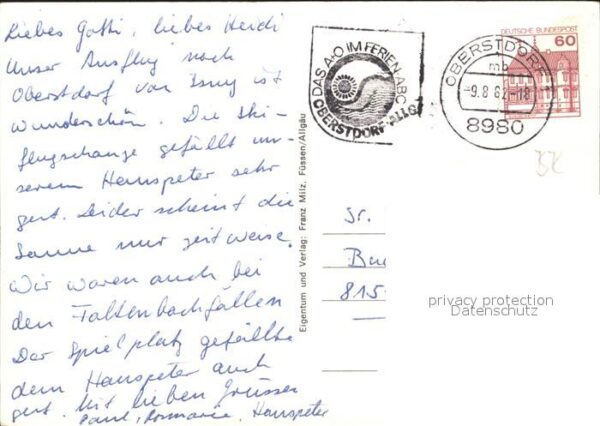 Liebes Gotti, liebes Heidi
Unser Ausflug nach
Oberstdorf von Isny ist
wunderschön. Die Ski-
flugschanze gefällt un-
serem Hanspeter sehr
gut. Leider scheint die
Sonne nur zeitweise.
Wir waren auch bei
den Faltenbachfällen
Der Spielplatz gefällt
dem Hanspeter auch
gut. Mit lieben Grüssen
Paul, Rosmarie, Hanspeter
DAS A+O IM FERIEN-ABC
OBERSTDORF-ALLG.
DEUTSCHE BUNDESPOST
60
OBERSTDORF
mb
-9.8.82-18
8980
Eigentum und Verlag: Franz Milz, Füssen/Allgäu
815
privacy protection
Datenschutz